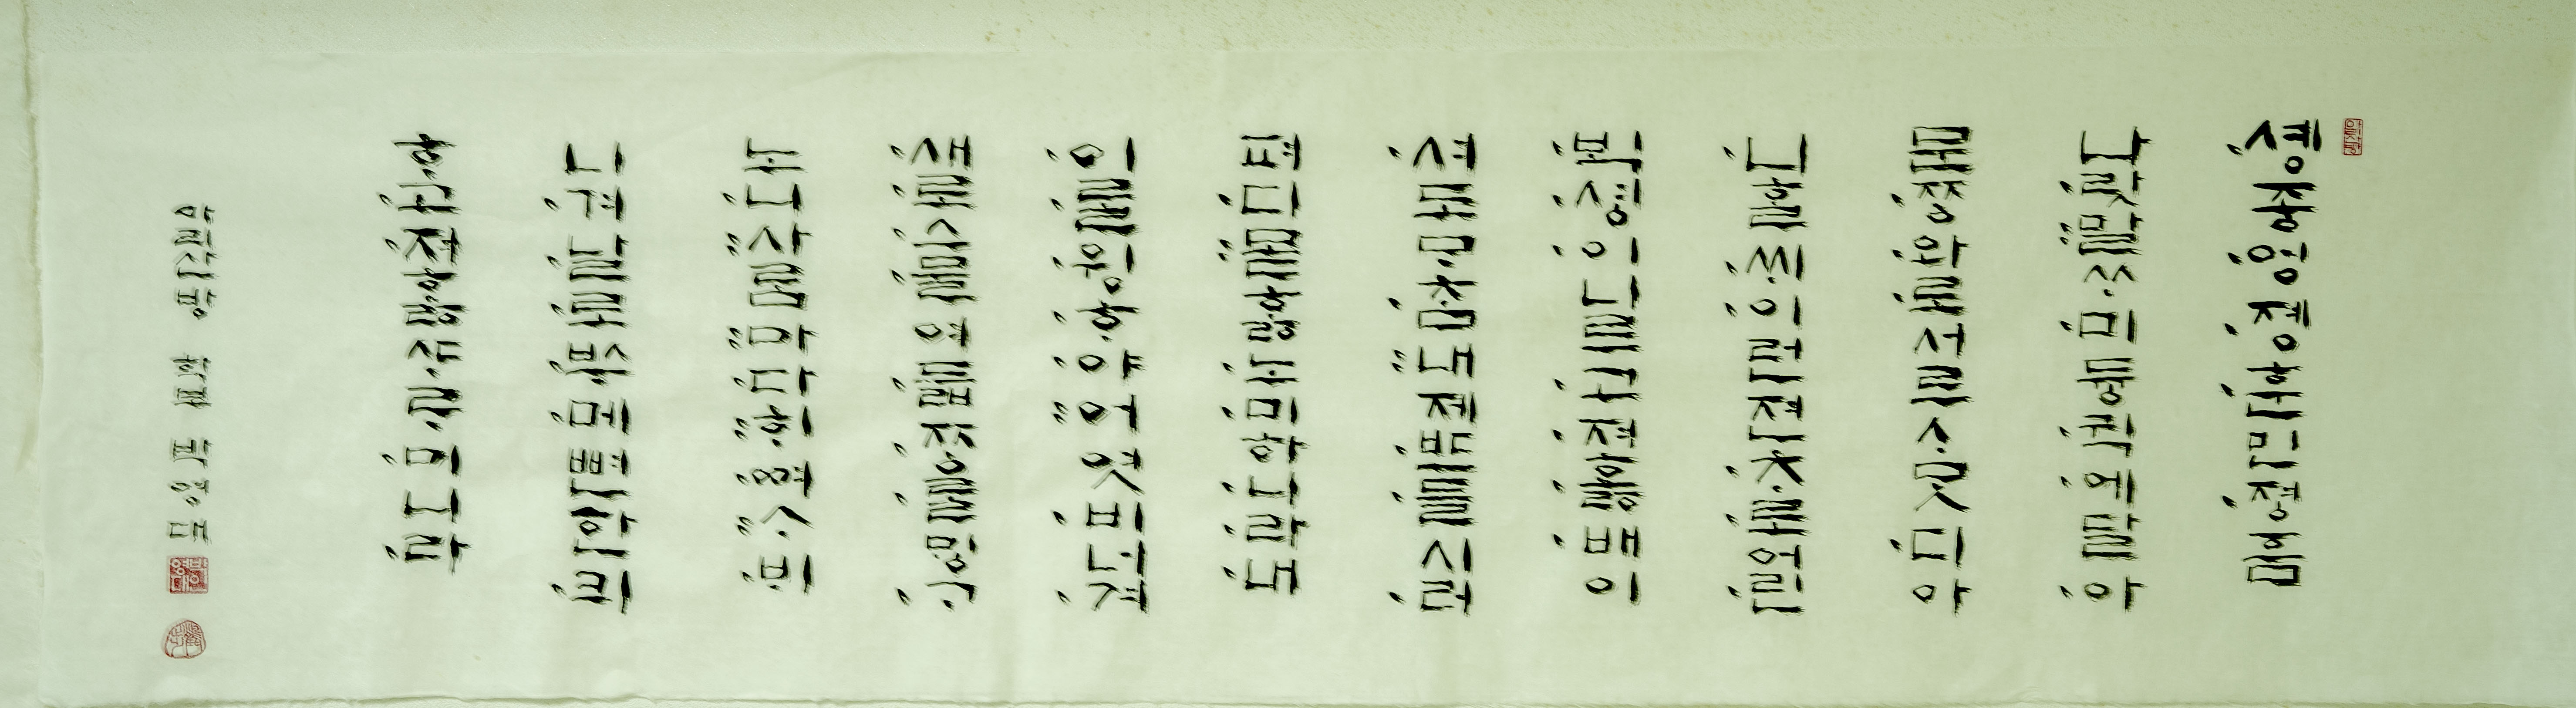 솅조ᇰᅌᅥᆼ졩훈민져ᇰᅙᅳᆷ
나·랏:말ᄊᆞ·미듀ᇰ·귁·에달·아
문·ᄍᆞᆼ·와·로서르ᄉᆞᄆᆞᆺ·디아
·니ᄒᆞᆯ·ᄊᆡ·이런젼·ᄎᆞ·로어·린
·ᄇᆡᆨ·셔ᇰ·이니르·고·져·호ᇙ배이
·셔·도ᄆᆞ·ᄎᆞᆷ:내제·ᄠᅳ·들시·러
펴·디:몯ᄒᆞᇙ·노·미하·니·라·내
·이·ᄅᆞᆯ·윙·ᄒᆞ·야:어엿·비너·겨
·새·로·스·믈여·듧·ᄍᆞᆼ·ᄅᆞᆯᄆᆡᇰ·ᄀᆞ
노·니:사ᄅᆞᆷ:마·다:ᄒᆡ·ᅇᅧ:수·ᄫᅵ
니·겨·날·로·ᄡᅮ·메뼌ᅙᅡᆫ·킈
ᄒᆞ·고·져ᄒᆞᇙᄯᆞᄅᆞ·미니·라
박영대인